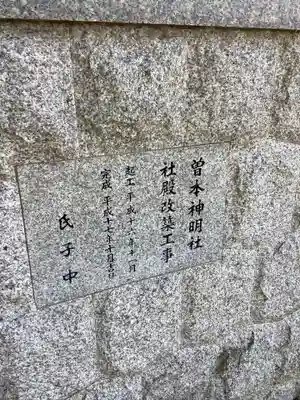 曽本神明社
社殿改築工事
起工 平成十六年十一月
完成 平成十七年十月吉日
氏子中